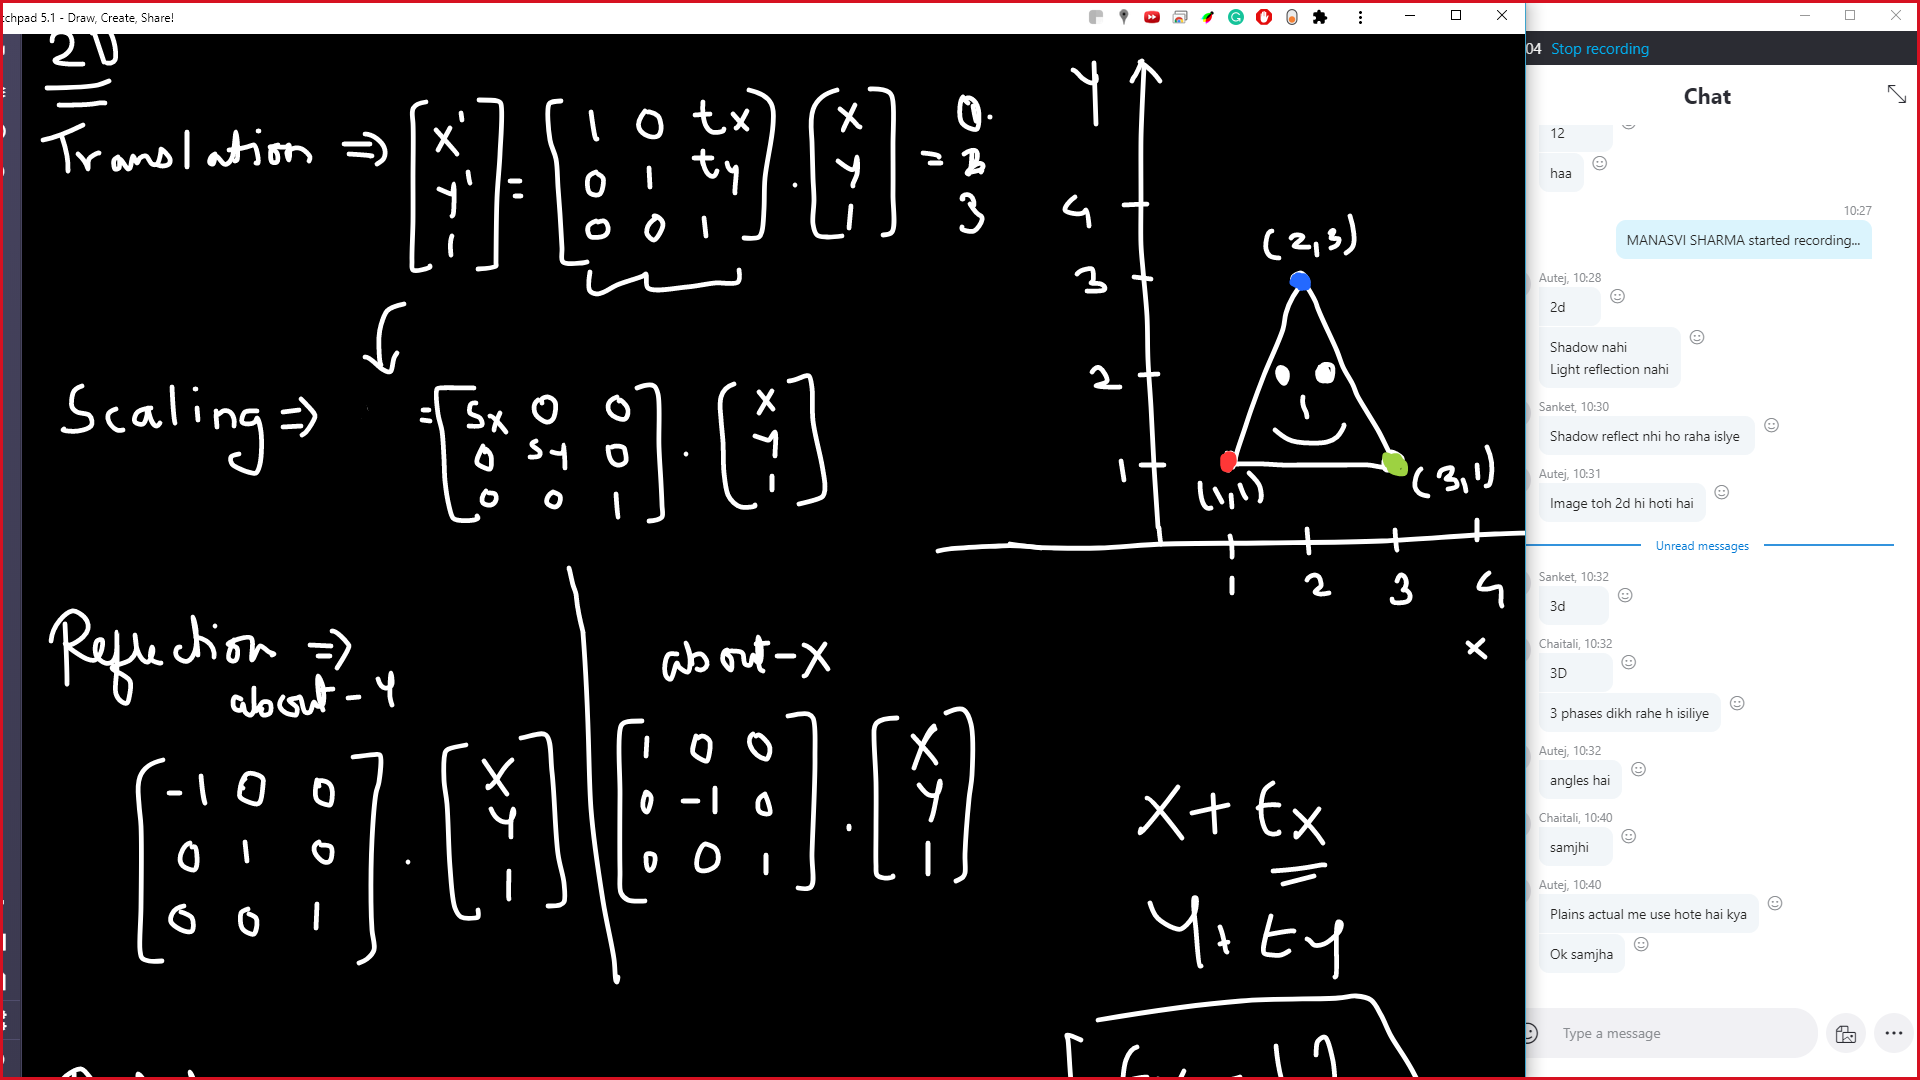 tchpad 5.1 - Draw, Create, Share!
2D
Translation => [x' y' 1] = [1 0 tx
0 1 ty
0 0 1] . [x y 1] =
3
Scaling => = [sx 0 0
0 sy 0
0 0 1] . [x y 1]
Reflection =>
about - Y
[-1 0 0
0 1 0
0 0 1] . [X Y 1]
about - X
[1 0 0
0 -1 0
0 0 1] . [X Y 1]
Y
4
3
2
1
(2,3)
(1,1)
(3,1)
1 2 3 4
x
X + tx
Y + ty
04 Stop recording
Chat
12
haa
10:27
MANASVI SHARMA started recording...
Autej, 10:28
2d
Shadow nahi
Light reflection nahi
Sanket, 10:30
Shadow reflect nhi ho raha islye
Autej, 10:31
Image toh 2d hi hoti hai
Unread messages
Sanket, 10:32
3d
Chaitali, 10:32
3D
3 phases dikh rahe h isiliye
Autej, 10:32
angles hai
Chaitali, 10:40
samjhi
Autej, 10:40
Plains actual me use hote hai kya
Ok samjha
Type a message